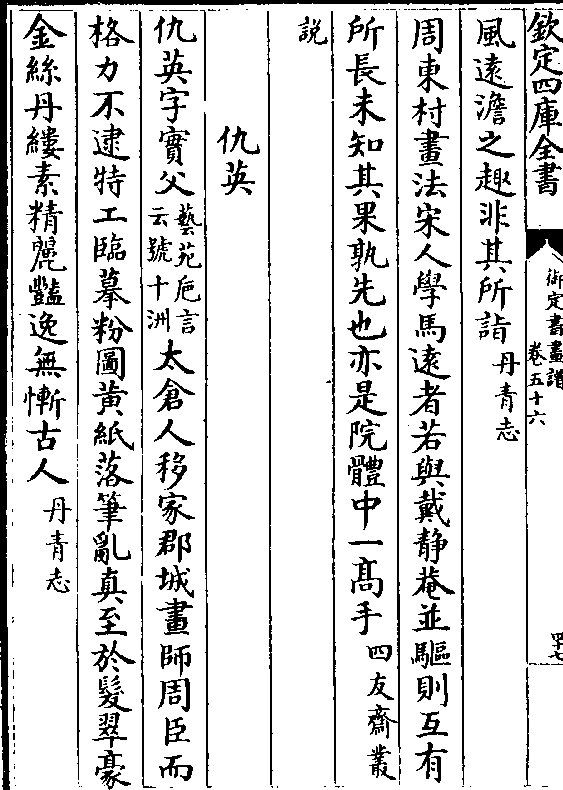 欽定四庫全書
御定書畫譜
卷五十六
四十七
風遠澹之趣非其所詣丹青志
周東村畫法宋人學馬遠者若與戴靜菴並驅則互有
所長未知其果孰先也亦是院體中一髙手四友齋叢
說
仇英
仇英字實父藝苑巵言云號十洲太倉人移家郡城畫師周臣而
格力不逮特工臨摹粉圖黄紙落筆亂真至於髮翠豪
金絲丹縷素精麗豔逸無慚古人丹青志